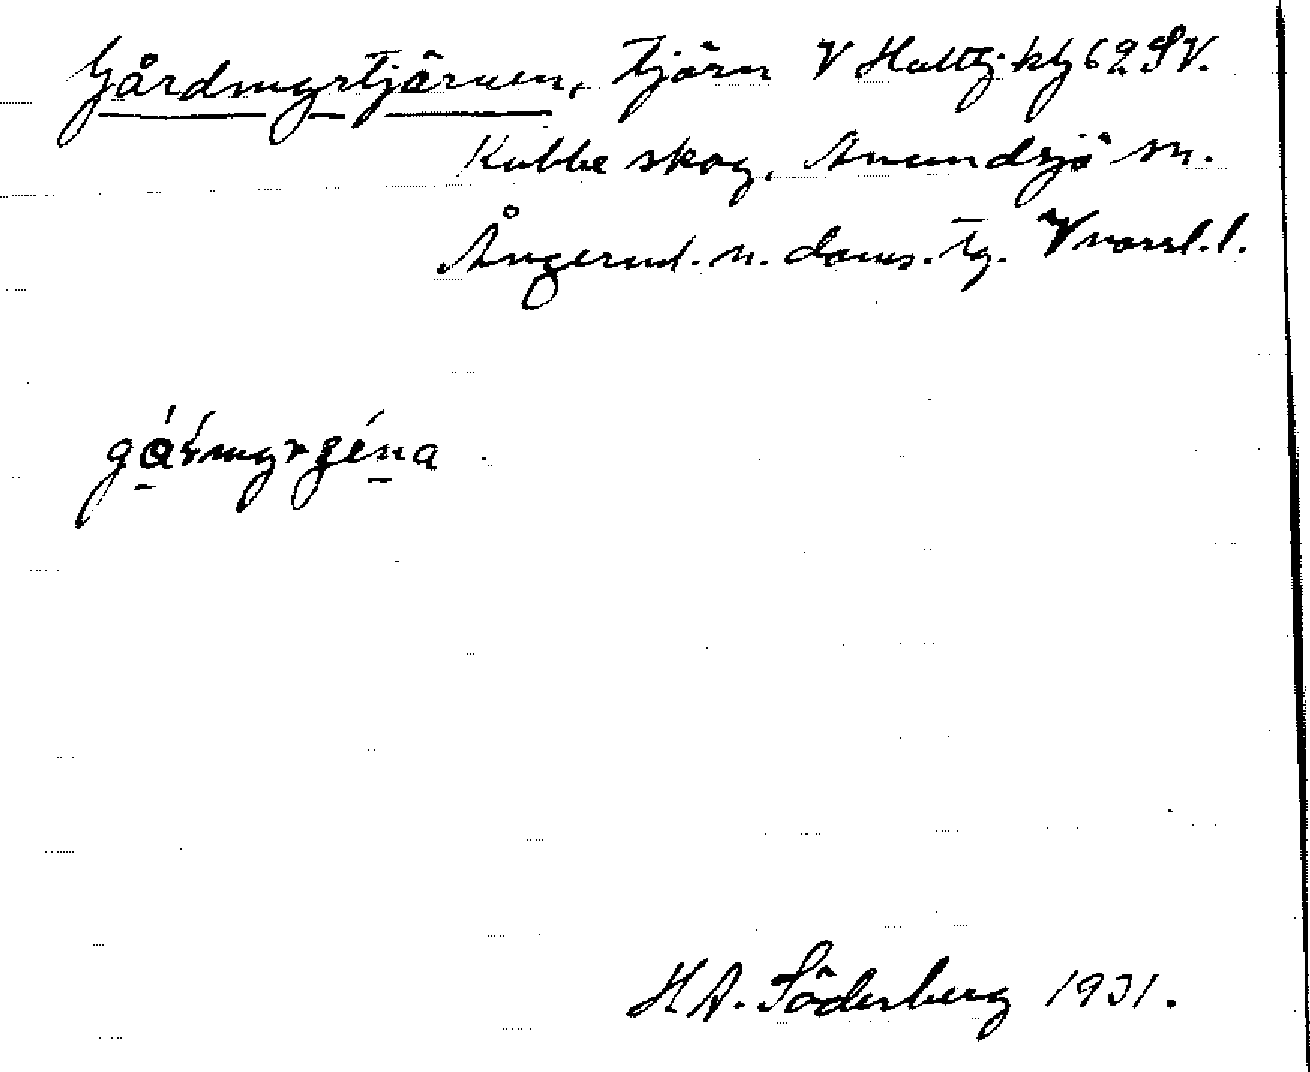 Gårdmyrtjärnen, tjärn V Hattsj. kbg 62 SV.
Kubbe skog, Anundsjö sn.
Ångerml. n. doms. tg. Vnorrl. l.
gármyrǥéna
H. A. Söderberg 1931.